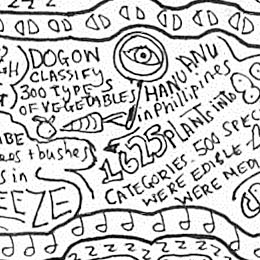 GH)
DOGON
CLASSIFY
300 TYPES
OF VEGETABLES
HANUANU
in Phillipines
1625 PLANTS into
CATEGORIES. 500 SPEC
WERE EDIBLE
WERE MED
BE
es + bushes
s in
EEZE
zzzzzzz